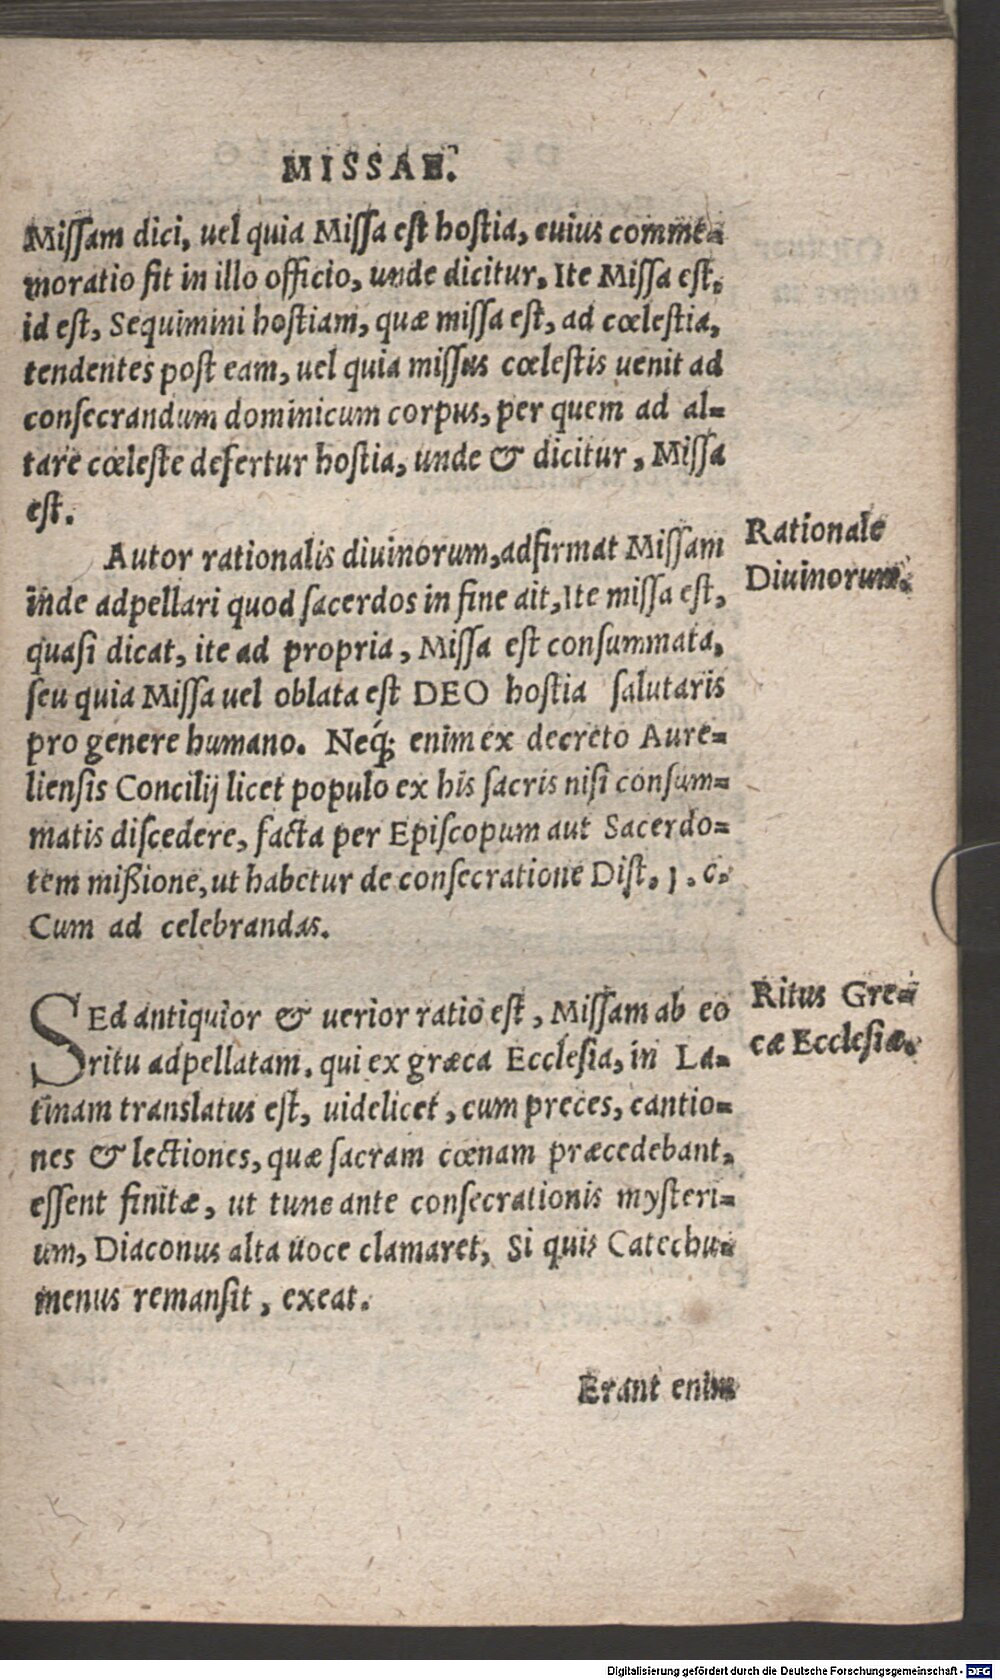 MISSAE.
Miſſam dici, uel quia Miſſa eſt hoſtia, cuius comme-
moratio fit in illo officio, unde dicitur, Ite Miſſa eſt.
id eſt, Sequimini hoſtiam, quæ miſſa eſt, ad cœleſtia,
tendentes poſt eam, uel quia miſſus cœleſtis uenit ad
conſecrandum dominicum corpus, per quem ad al-
tare cœleſte defertur hoſtia, unde & dicitur, Miſſa
eſt.
Autor rationalis diuinorum, adfirmat Miſſam
inde adpellari quod ſacerdos in fine ait, Ite miſſa eſt,
quaſi dicat, ite ad propria, Miſſa eſt conſummata,
ſeu quia Miſſa uel oblata eſt DEO hoſtia ſalutaris
pro genere humano. Neq́; enim ex decreto Aure-
lienſis Concilij licet populo ex his ſacris niſi conſum-
matis diſcedere, facta per Epiſcopum aut Sacerdo-
tem mißione, ut habetur de conſecratione Diſt. 1. c.
Cum ad celebrandas.
Rationale
Diuinorum.
SEd antiquior & uerior ratio eſt, Miſſam ab eo
ritu adpellatam. qui ex græca Eccleſia, in La-
tinam translatus eſt, uidelicet, cum preces, cantio-
nes & lectiones, quæ ſacram cœnam præcedebant,
eſſent finitæ, ut tunc ante conſecrationis myſteri-
um, Diaconus alta uoce clamaret, Si quis Catechu-
menus remanſit, exeat.
Ritus Gre-
cæ Eccleſiæ.
Erant enim
Digitalisierung gefördert durch die Deutsche Forschungsgemeinschaft - DFG